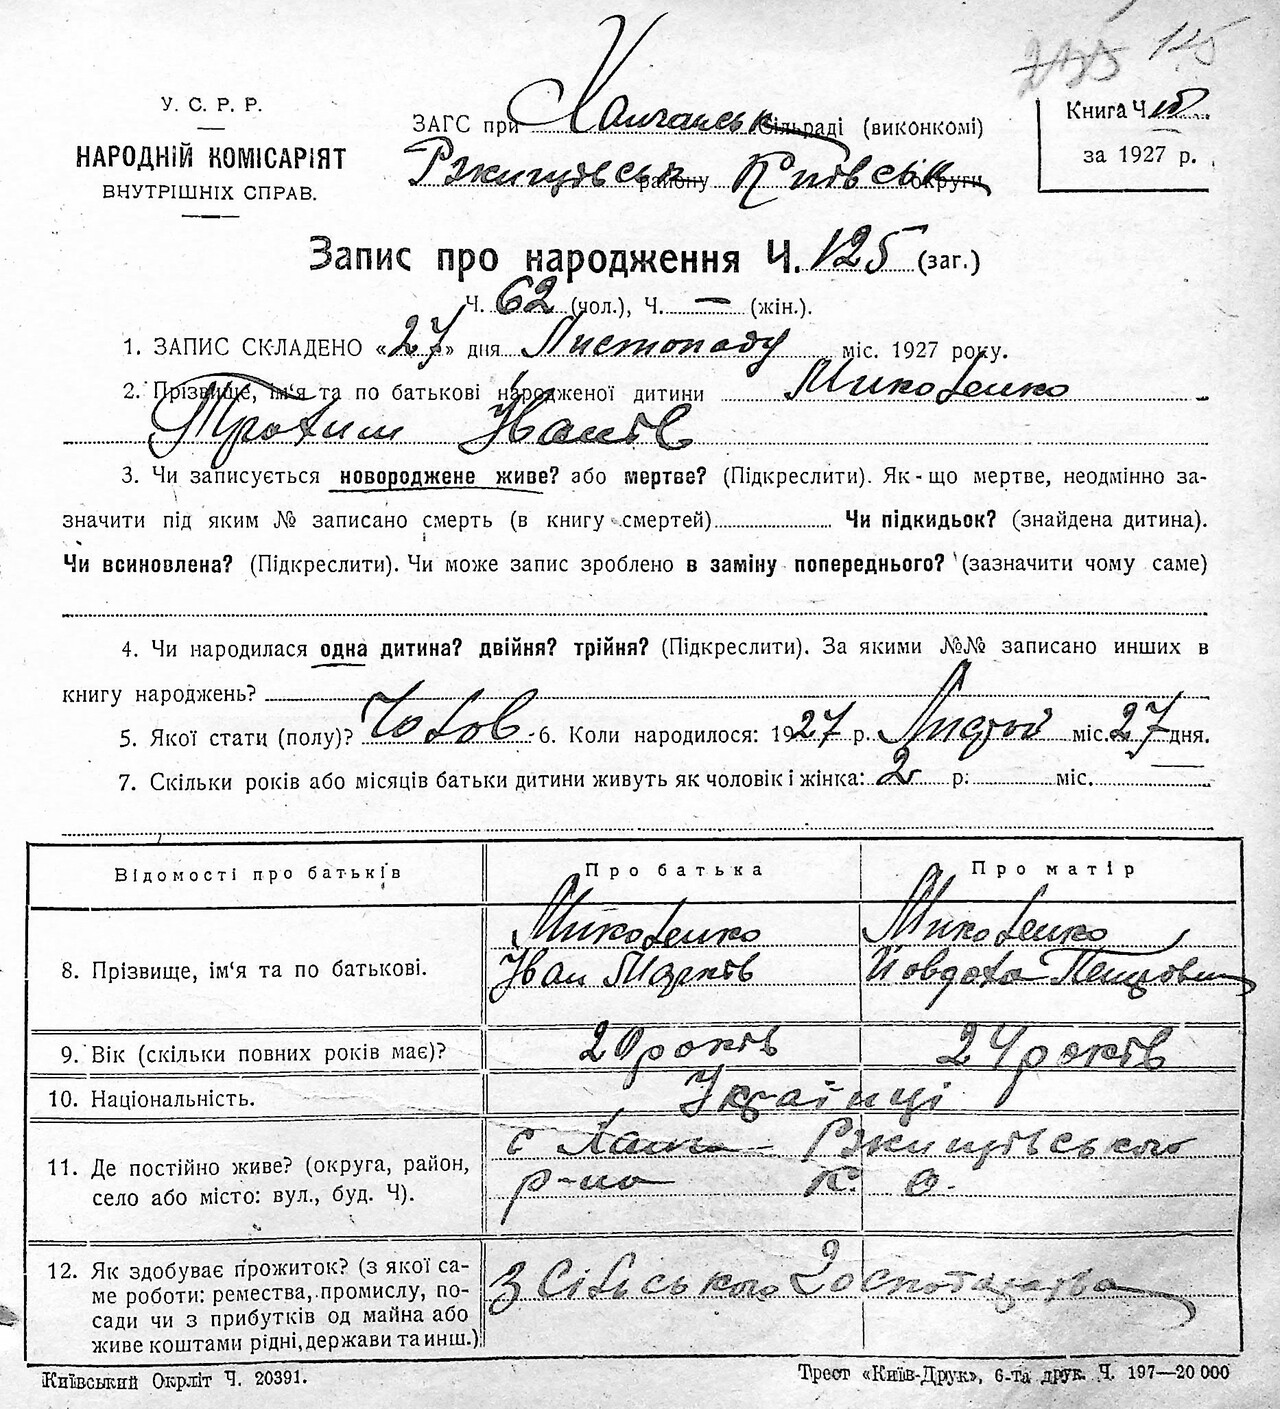 125
У. С. Р. Р.
НАРОДНІЙ КОМІСАРІЯТ
ВНУТРІШНІХ СПРАВ.
ЗАГС при Ханчанськ Сільраді (виконкомі)
Ржищівськ району Київськ округи
Книга Ч.
за 1927 р.
Запис про народження Ч. 125 (заг.)
Ч. 62 (чол.), Ч. — (жін.).
1. ЗАПИС СКЛАДЕНО «27» дня Листопаду міс. 1927 року.
2. Прізвище, ім'я та по батькові народженої дитини Миколенко
Трохим Іванів
3. Чи записується новороджене живе? або мертве? (Підкреслити). Як-що мертве, неодмінно за-
значити під яким № записано смерть (в книгу смертей) Чи підкидьок? (знайдена дитина).
Чи всиновлена? (Підкреслити). Чи може запис зроблено в заміну попереднього? (зазначити чому саме)
4. Чи народилася одна дитина? двійня? трійня? (Підкреслити). За якими №№ записано инших в
книгу народжень?
5. Якої стати (полу)? Чолов. 6. Коли народилося: 1927 р. Листоп міс. 27 дня.
7. Скільки років або місяців батьки дитини живуть як чоловік і жінка: 2 р. міс.
Відомості про батьків Про батька Про матір
8. Прізвище, ім'я та по батькові. Миколенко Миколенко
Іван Марків Йовдоха Петрівна
9. Вік (скільки повних років має)? 20 років 24 років
10. Національність. Українці
11. Де постійно живе? (округа, район,
село або місто: вул., буд. Ч).
с Ржищівського
р-но К. О.
12. Як здобуває прожиток? (з якої са-
ме роботи: ремества, промислу, по-
сади чи з прибутків од майна або
живе коштами рідні, держави та инш.)
З Сільського Господарства
Київський Окрліт Ч. 20391.
Трест «Київ-Друк», 6-та друк. Ч. 197—20 000